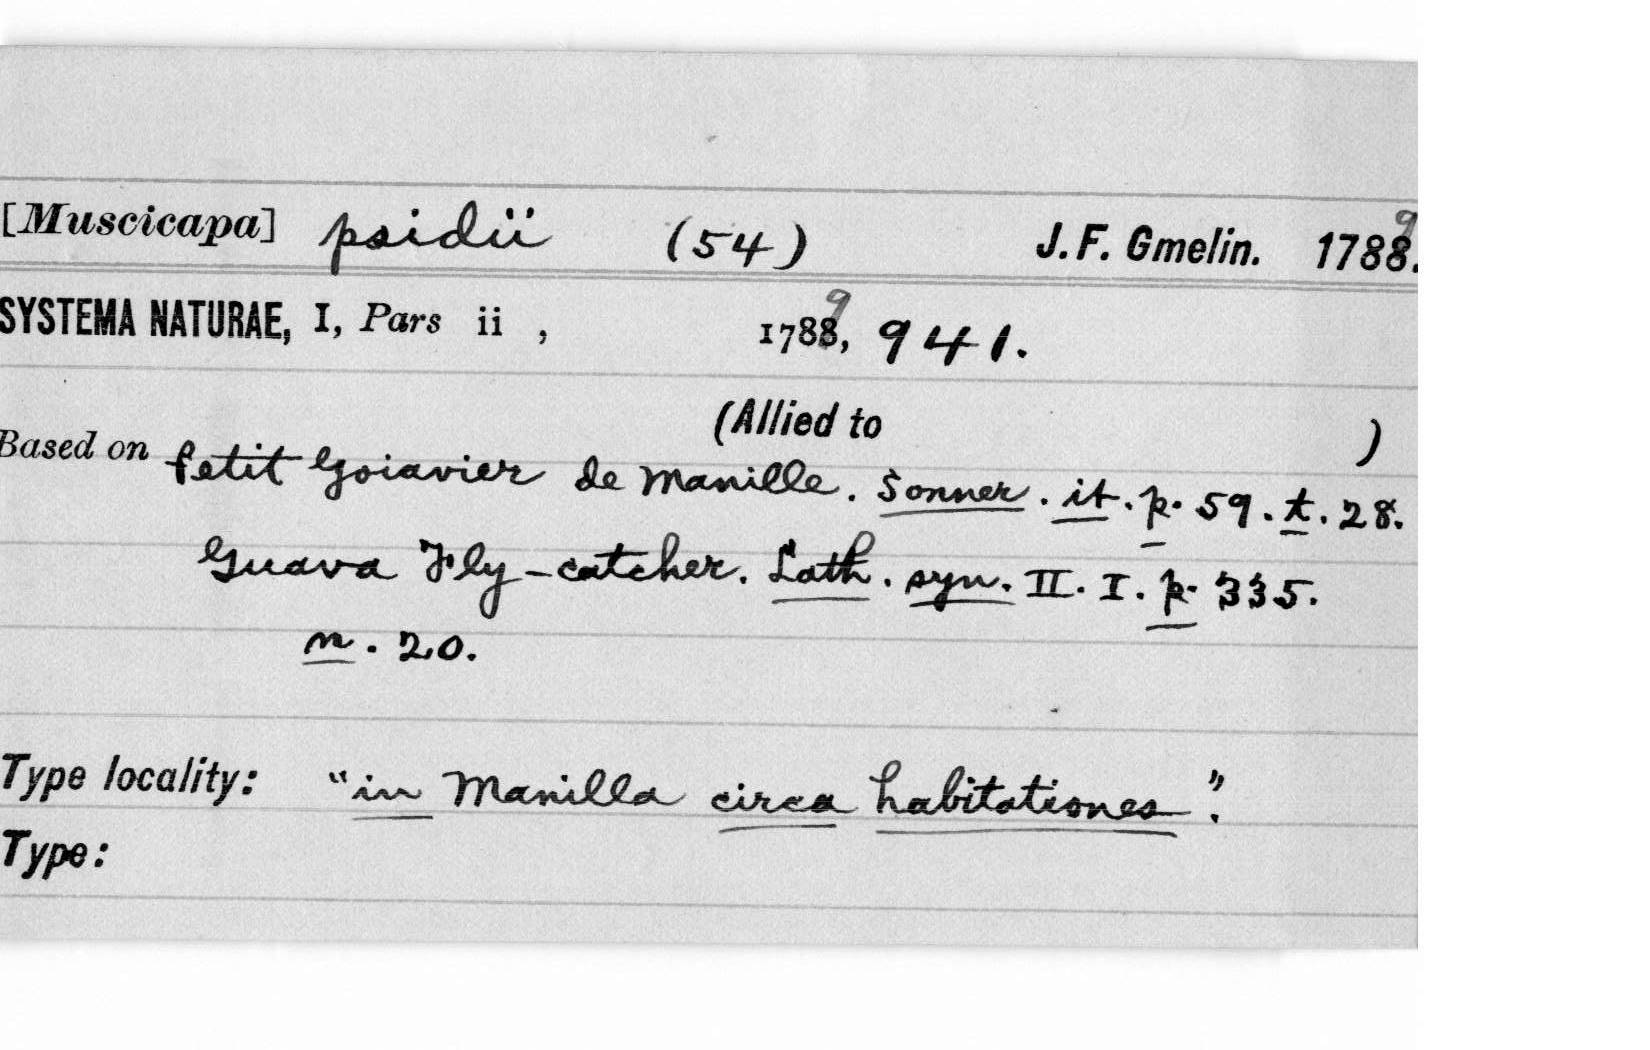 [Muscicapa] psidii (54) J. F. Gmelin. 17889.
SYSTEMA NATURAE, I, Pars ii , 17889, 941.
(Allied to )
Based on Petit Goiavier de Manille. Sonner. it. p. 59. t. 28.
Guava Fly-catcher. Lath. syn. II. I. p. 335.
n. 20.
Type locality: "in Manilla circa habitationes".
Type: